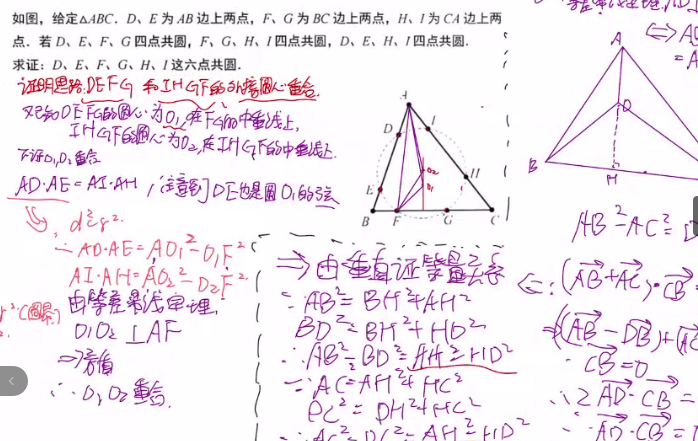 如图，给定△ABC．D、E 为 AB 边上两点，F、G 为 BC 边上两点，H、I 为 CA 边上两
点．若 D、E、F、G 四点共圆，F、G、H、I 四点共圆，D、E、H、I 四点共圆．
求证：D、E、F、G、H、I 这六点共圆．
证明思路:DEFG 和 IHGF的外接圆心重合.
又已知DEFG的圆心为O₁,在FG的中垂线上,
IHGF的圆心为O₂,在IHGF的中垂线上.
下证O₁,O₂重合
AD·AE=AI·AH,(注意到)DE也是圆O₁的弦
d²-r².
∴AD·AE=AO₁²-O₁F²
AI·AH=AO₂²-O₂F².
由等差幂线定理,
O₁O₂⊥AF
∴O₁O₂重合.
A
D
I
O₂
O₁
H
E
B
F
G
C
⇒由垂直证等量关系
∵AB²=BH²+AH²
BD²=BH²+HD²
∴AB²-BD²=AH²-HD²
∵AC²=AH²+HC²
DC²=DH²+HC²
∴AC²-DC²=AH²-HD²
A
D
B
H
AB²-AC²=
⇐:(AB+AC)·CB=
⇒(AB-DB)+(AC
·CB=0
∴2AD·CB=
∴AD·CB=